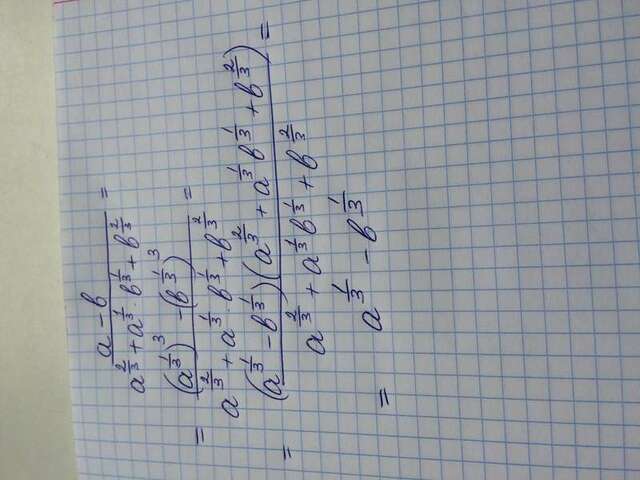 (a - b) / (a^(2/3) + a^(1/3) · b^(1/3) + b^(2/3)) =
= ((a^(1/3))^3 - (b^(1/3))^3) / (a^(2/3) + a^(1/3) · b^(1/3) + b^(2/3)) =
= ((a^(1/3) - b^(1/3))(a^(2/3) + a^(1/3) b^(1/3) + b^(2/3))) / (a^(2/3) + a^(1/3) b^(1/3) + b^(2/3)) =
= a^(1/3) - b^(1/3)